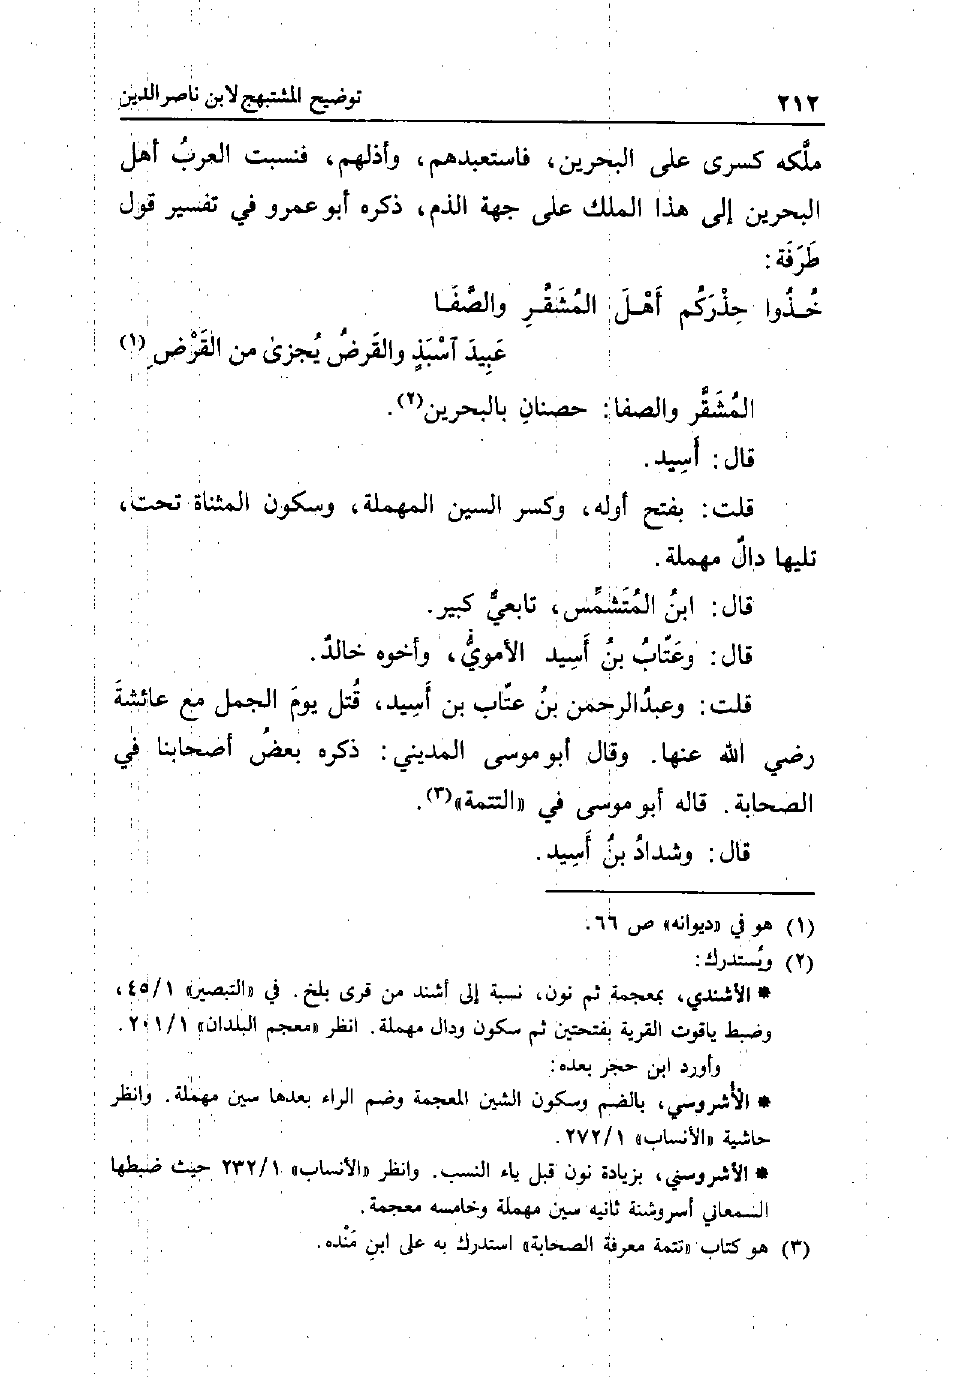 ٢١٢
توضيح المشتبه ج لابن ناصر الدين
ملَّكه كسرى على البحرين، فاستعبدهم، وأذلهم، فنسبت العربُ أهل
البحرين إلى هذا الملك على جهة الذم، ذكره أبو عمرو في تفسير قول
طَرَفَة:
خُـذُوا حِذْرَكُم أَهْـلَ المُشَقَّـرِ والصَّفَـا
عَبِيدَ آسْبَذٍ والقَرضُ يُجزىٰ من القَرْضِ (١)
المُشَقَّر والصفا: حصنانِ بالبحرين(٢).
قال: أَسِيد.
قلت: بفتح أوله، وكسر السين المهملة، وسكون المثناة تحت،
تليها دالٌ مهملة.
قال: ابنُ المُتَشمِّس، تابعيٌّ كبير.
قال: وعَتّابُ بنُ أَسِيد الأمويُّ، وأخوه خالدٌ.
قلت: وعبدُالرحمن بنُ عتّاب بن أَسِيد، قُتل يومَ الجمل مع عائشةَ
رضي الله عنها. وقال أبو موسى المديني: ذكره بعضُ أصحابنا في
الصحابة. قاله أبو موسى في «التتمة»(٣).
قال: وشدادُ بنُ أَسِيد.
(١) هو في «ديوانه» ص ٦٦.
(٢) ويُستدرك:
* الأشندي، بمعجمة ثم نون، نسبة إلى أشند من قرى بلخ. في «التبصير» ٤٥/١،
وضبط ياقوت القرية بفتحتين ثم سكون ودال مهملة. انظر «معجم البلدان» ٢٠١/١.
وأورد ابن حجر بعده:
* الأُشروسي، بالضم وسكون الشين المعجمة وضم الراء بعدها سين مهملة. وانظر
حاشية «الأنساب» ٢٧٢/١.
* الأشروسني، بزيادة نون قبل ياء النسب. وانظر «الأنساب» ٢٣٢/١ حيث ضبطها
السمعاني أسروشنة ثانيه سين مهملة وخامسه معجمة.
(٣) هو كتاب «تتمة معرفة الصحابة» استدرك به على ابنِ مَنْده.